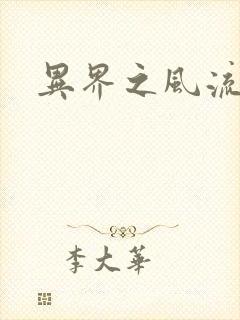 異界之風流
李大華